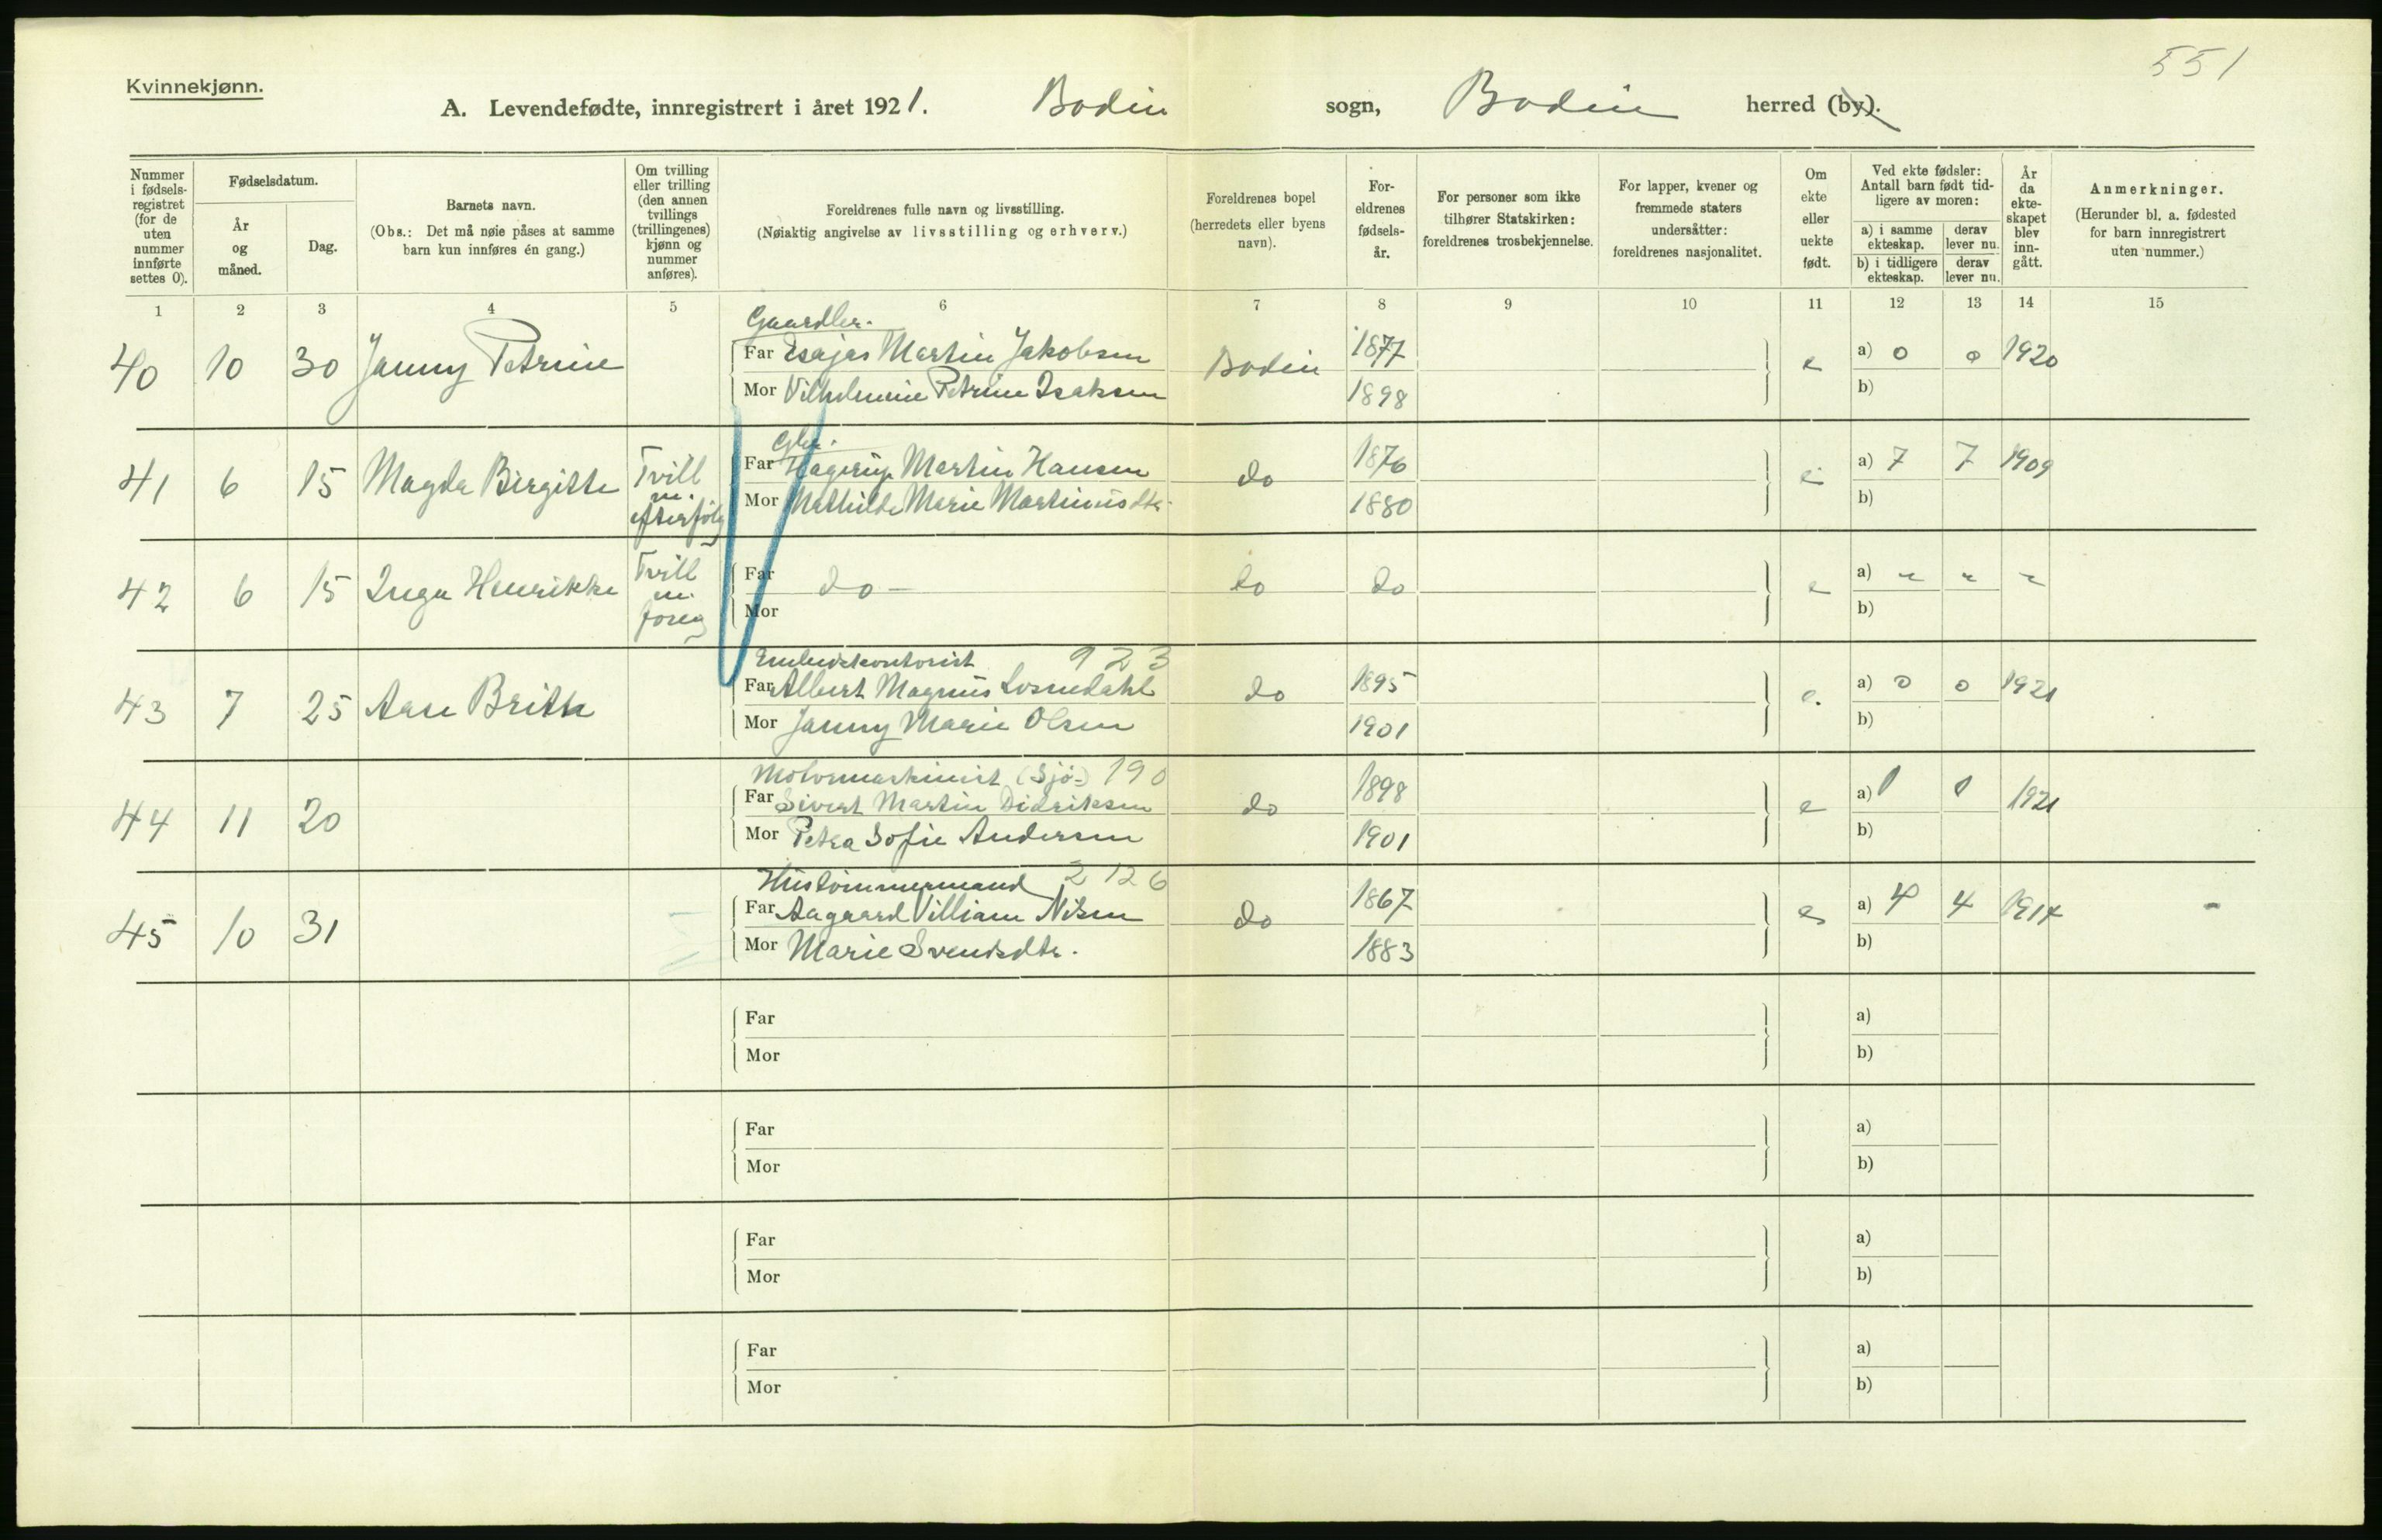 551
Kvinnekjønn.
A. Levendefødte, innregistrert i året 1921. Bodin sogn, Bodin herred (by).
Nummer i fødsels-registret (for de uten nummer innførte settes 0).
Fødselsdatum.
År og måned.
Dag.
Barnets navn.
(Obs.: Det må nøie påses at samme barn kun innføres én gang.)
Om tvilling eller trilling (den annen tvillings (trillingenes) kjønn og nummer anføres).
Foreldrenes fulle navn og livsstilling.
(Nøiaktig angivelse av livsstilling og erhverv.)
Foreldrenes bopel (herredets eller byens navn).
For-eldrenes fødsels-år.
For personer som ikke tilhører Statskirken: foreldrenes trosbekjennelse.
For lapper, kvener og fremmede staters undersåtter: foreldrenes nasjonalitet.
Om ekte eller uekte født.
Ved ekte fødsler: Antall barn født tid-ligere av moren:
a) i samme ekteskap.
derav lever nu.
b) i tidligere ekteskap.
derav lever nu.
År da ekte-skapet blev inn-gått.
Anmerkninger.
(Herunder bl. a. fødested for barn innregistrert uten nummer.)
1 2 3 4 5 6 7 8 9 10 11 12 13 14 15
Gaardbr.
40 10 30 Janny Petrine Far Esajas Martin Jakobsen Bodin 1877 e a) 0 0 1920
Mor Vilhelmine Petrine Isaksen 1898 b)
Gbr.
41 6 15 Magda Birgitte Tvill m. efterfølg Far Hagerup Martin Hansen do 1876 e a) 7 7 1909
Mor Mathilde Marie Martinusdtr. 1880 b)
42 6 15 Inga Henrikke Tvill m. foreg Far do - do do e a) " " "
Mor b)
923
43 7 25 Aase Britt Far Albert Magnus do 1895 e. a) 0 0 1921
Mor Janny Marie Olsen 1901 b)
Motormaskinist (Sjø-) 190
44 11 20 Far Sivert Martin Didriksen do 1898 e a) 1 1 1921
Mor Petra Sofie Andersen 1901 b)
Hustømmermand 2 126
45 10 31 Far Aagaard Villiam Nilsen do 1867 e a) 4 4 1914 -
Mor Marie Svendsdtr. 1883 b)
Far a)
Mor b)
Far a)
Mor b)
Far a)
Mor b)
Far a)
Mor b)